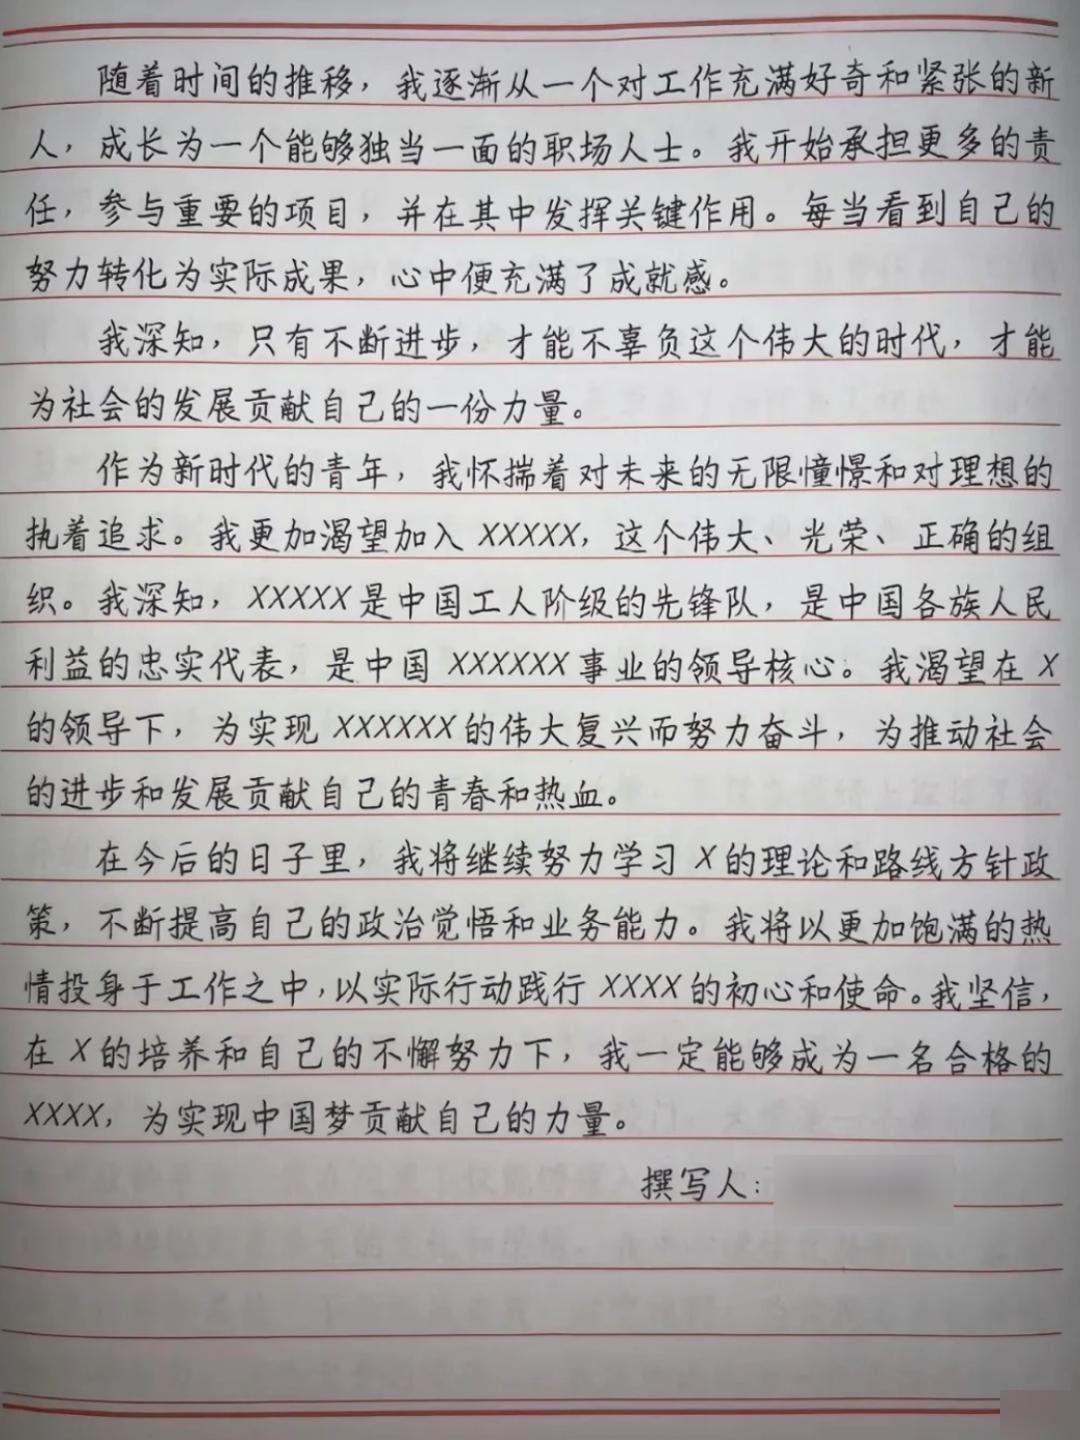 随着时间的推移，我逐渐从一个对工作充满好奇和紧张的新
人，成长为一个能够独当一面的职场人士。我开始承担更多的责
任，参与重要的项目，并在其中发挥关键作用。每当看到自己的
努力转化为实际成果，心中便充满了成就感。
我深知，只有不断进步，才能不辜负这个伟大的时代，才能
为社会的发展贡献自己的一份力量。
作为新时代的青年，我怀揣着对未来的无限憧憬和对理想的
执着追求。我更加渴望加入 XXXXX，这个伟大、光荣、正确的组
织。我深知，XXXXX是中国工人阶级的先锋队，是中国各族人民
利益的忠实代表，是中国 XXXXXX事业的领导核心。我渴望在 X
的领导下，为实现 XXXXXX的伟大复兴而努力奋斗，为推动社会
的进步和发展贡献自己的青春和热血。
在今后的日子里，我将继续努力学习 X的理论和路线方针政
策，不断提高自己的政治觉悟和业务能力。我将以更加饱满的热
情投身于工作之中，以实际行动践行 XXXX的初心和使命。我坚信，
在 X的培养和自己的不懈努力下，我一定能够成为一名合格的
XXXX，为实现中国梦贡献自己的力量。
撰写人：